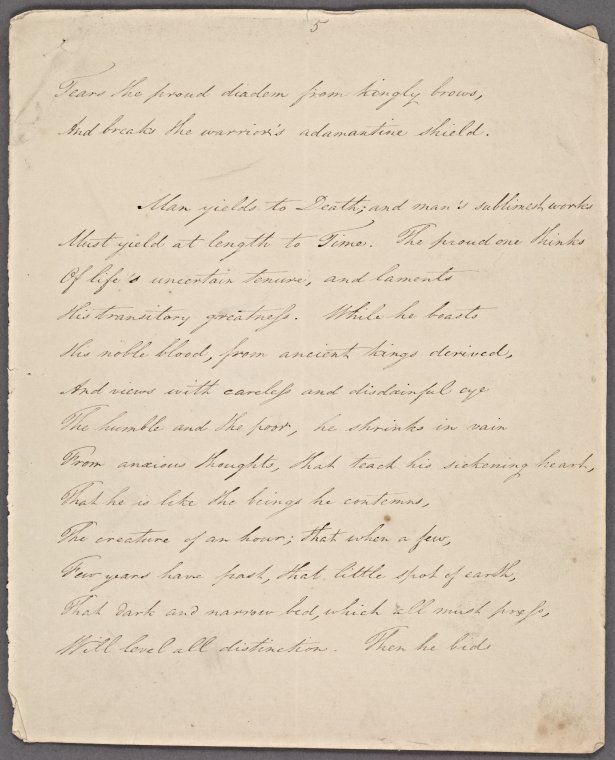 5
Tears the proud diadem from kingly brows,
And breaks the warrior's adamantine shield.
Man yields to Death; and man's sublimest works
Must yield at length to Time. The proud one thinks
Of life's uncertain tenure, and laments
His transitory greatness. While he boasts
His noble blood, from ancient kings derived,
And views with careless and disdainful eye
The humble and the poor, he shrinks in vain
From anxious thoughts, that teach his sickening heart,
That he is like the beings he contemns,
The creature of an hour; that when a few,
Few years have past, that little spot of earth,
That dark and narrow bed, which all must press,
Will level all distinction. Then he bids